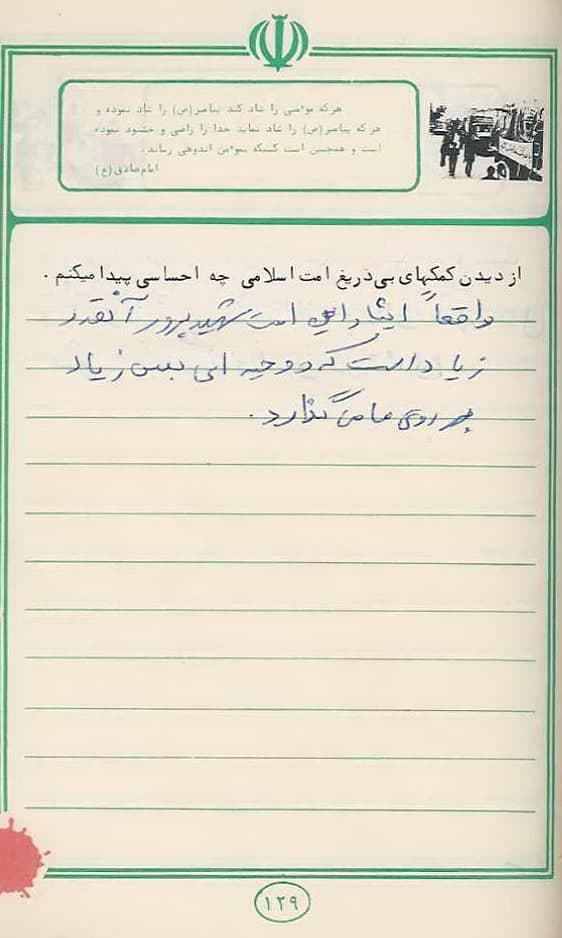 هرکه مؤمنی را شاد کند پیامبر(ص) را شاد نموده و
هرکه پیامبر(ص) را شاد نماید خدا را راضی و خشنود نموده
است و همچنین است کسیکه بمؤمن اندوهی رساند.
امام صادق (ع)
از دیدن کمکهای بی‌دریغ امت اسلامی چه احساسی پیدا میکنم.
واقعاً ایثار این امت شهید پرور آنقدر
زیاد است که روحیه ای بس زیاد
بر روی ما می گذارد.
۱۲۹